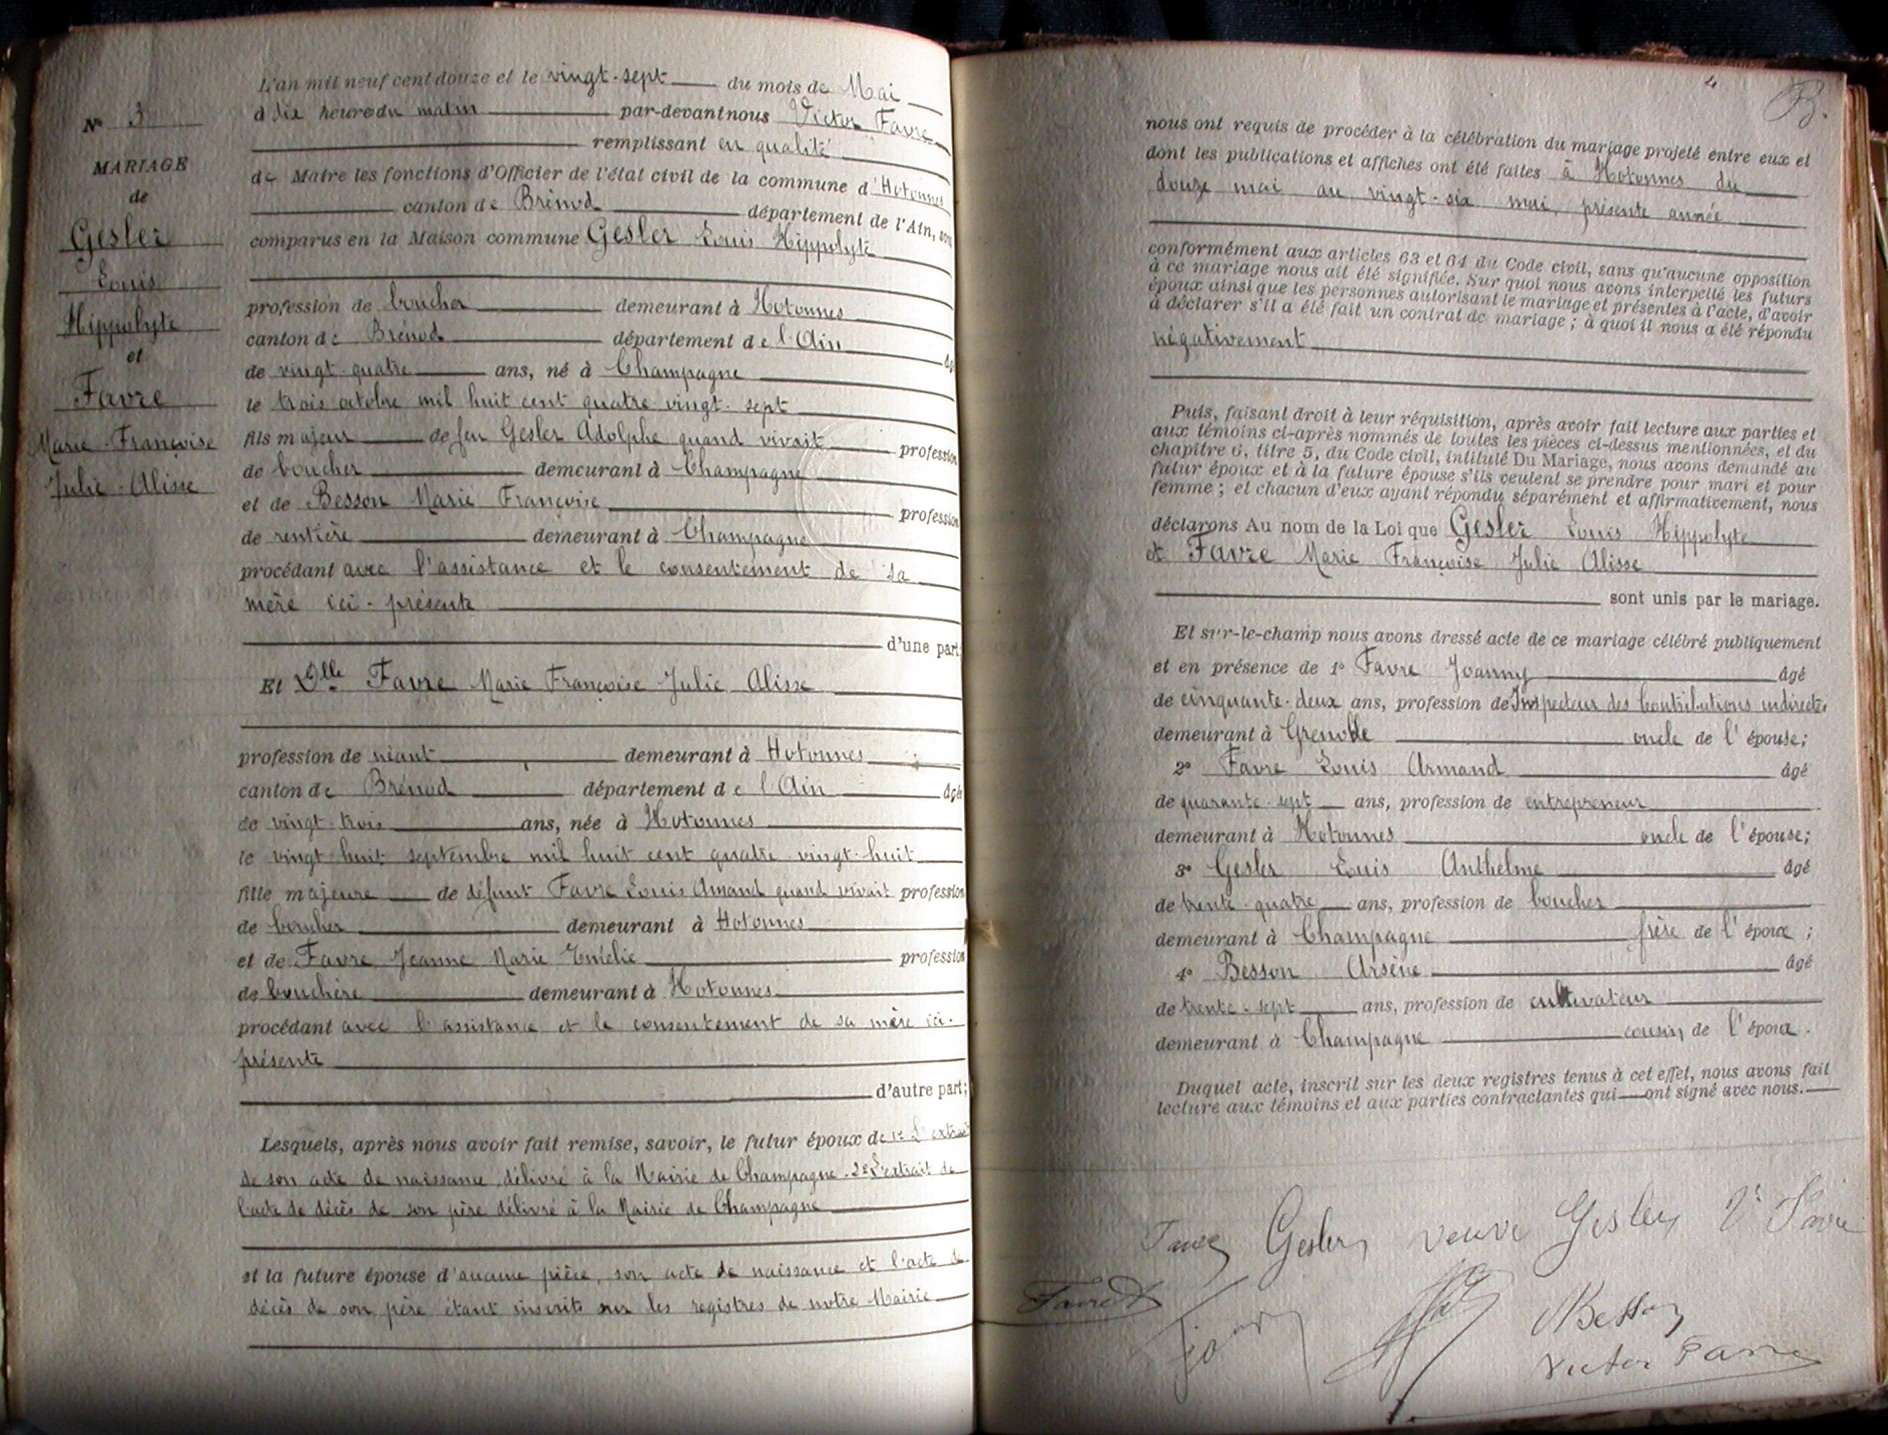 N° 3
MARIAGE
de
Gesler
Louis
Hippolyte
et
Favre
Marie-Françoise
Julie-Alisse
L'an mil neuf cent douze et le vingt-sept du mois de Mai
à dix heures du matin par-devant nous Victor Favre
remplissant en qualité
de Maire les fonctions d'Officier de l'état civil de la commune d'Hotonnes
canton de Brénod département de l'Ain, sont
comparus en la Maison commune Gesler Louis Hippolyte
profession de boucher demeurant à Hotonnes
canton de Brénod département de l'Ain âgé
de vingt-quatre ans, né à Champagne
le trois octobre mil huit cent quatre-vingt-sept
fils majeur de feu Gesler Adolphe quand vivait profession
de boucher demeurant à Champagne
et de Besson Marie Françoise profession
de rentière demeurant à Champagne
procédant avec l'assistance et le consentement de sa
mère ici-présente
d'une part;
Et Dlle Favre Marie Françoise Julie Alisse
profession de néant demeurant à Hotonnes
canton de Brénod département de l'Ain âgée
de vingt-trois ans, née à Hotonnes
le vingt-huit septembre mil huit cent quatre-vingt-huit
fille majeure de défunt Favre Louis Amand quand vivait profession
de boucher demeurant à Hotonnes
et de Favre Jeanne Marie Emélie profession
de bouchère demeurant à Hotonnes
procédant avec l'assistance et le consentement de sa mère ici-
présente
d'autre part;
Lesquels, après nous avoir fait remise, savoir, le futur époux de 1° L'extrait
de son acte de naissance délivré à la Mairie de Champagne. 2° L'extrait de
l'acte de décès de son père délivré à la Mairie de Champagne
et la future épouse d'aucune pièce, son acte de naissance et l'acte de
décès de son père étant inscrits sur les registres de notre Mairie
4
B.
nous ont requis de procéder à la célébration du mariage projeté entre eux et
dont les publications et affiches ont été faites à Hotonnes du
douze mai au vingt-six mai, présente année
conformément aux articles 63 et 64 du Code civil, sans qu'aucune opposition
à ce mariage nous ait été signifiée. Sur quoi nous avons interpellé les futurs
époux ainsi que les personnes autorisant le mariage et présentes à l'acte, d'avoir
à déclarer s'il a été fait un contrat de mariage; à quoi il nous a été répondu
négativement
Puis, faisant droit à leur réquisition, après avoir fait lecture aux parties et
aux témoins ci-après nommés de toutes les pièces ci-dessus mentionnées, et du
chapitre 6, titre 5, du Code civil, intitulé Du Mariage, nous avons demandé au
futur époux et à la future épouse s'ils veulent se prendre pour mari et pour
femme; et chacun d'eux ayant répondu séparément et affirmativement, nous
déclarons Au nom de la Loi que Gesler Louis Hippolyte
et Favre Marie Françoise Julie Alisse
sont unis par le mariage.
Et sur-le-champ nous avons dressé acte de ce mariage célébré publiquement
et en présence de 1° Favre Joanny âgé
de cinquante-deux ans, profession de Inspecteur des Contributions indirectes
demeurant à Grenoble oncle de l'épouse;
2° Favre Louis Armand âgé
de quarante-sept ans, profession de entrepreneur
demeurant à Hotonnes oncle de l'épouse;
3° Gesler Louis Anthelme âgé
de trente-quatre ans, profession de boucher
demeurant à Champagne frère de l'époux;
4° Besson Arsène âgé
de trente-sept ans, profession de cultivateur
demeurant à Champagne cousin de l'époux.
Duquel acte, inscrit sur les deux registres tenus à cet effet, nous avons fait
lecture aux témoins et aux parties contractantes qui ont signé avec nous.
Favre Gesler veuve Gesler Ve Favre
Favre
Besson
Victor Favre